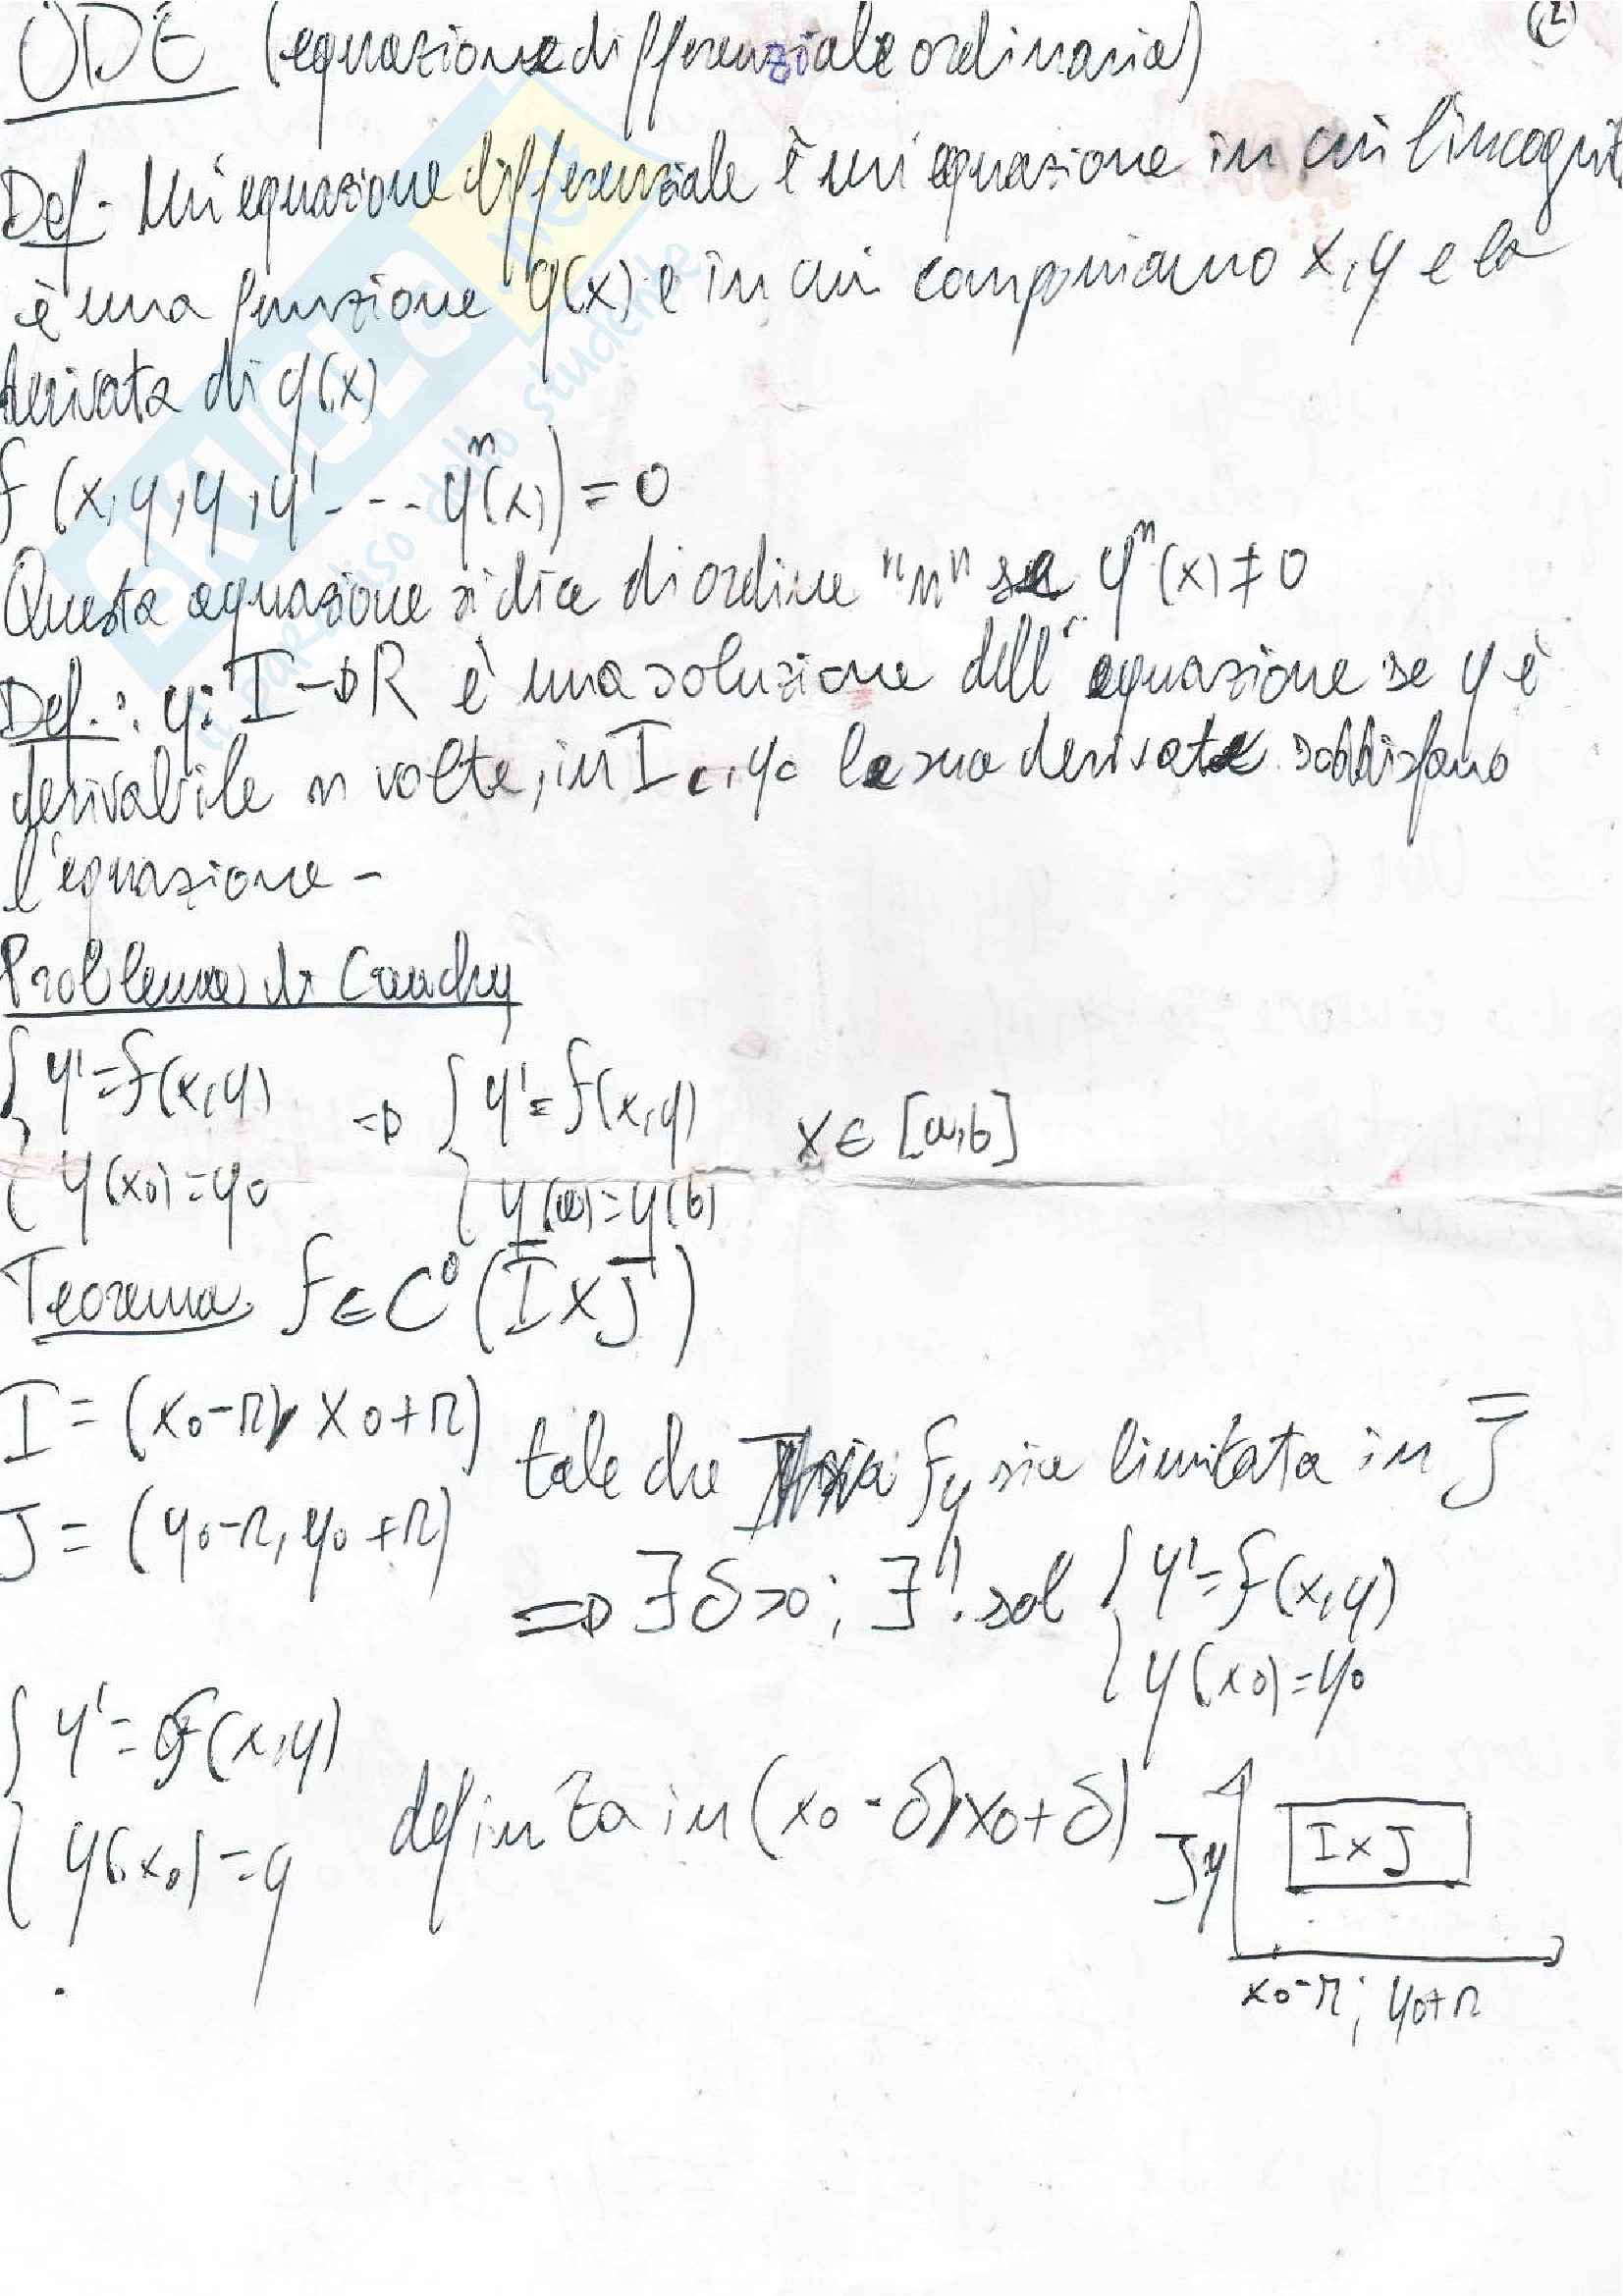 (2)
ODE (equazione differenziale ordinaria)
Def. Un'equazione differenziale è un'equazione in cui l'incognit
è una funzione y(x) e in cui compaiono x, y e la
derivata di y(x)
f (x, y, y, y' - -- yⁿ(x)) = 0
Questa equazione si dice di ordine "n" se yⁿ(x) ≠ 0
Def.: y: I → R è una soluzione dell'equazione se y è
derivabile n volte, in I e, y e le sue derivate soddisfano
l'equazione -
Problema di Cauchy
{ y' = f(x,y) ⇒ { y' = f(x,y) x ∈ [a,b]
{ y(x₀) = y₀ { y(a) = y(b)
Teorema f ∈ C⁰ (I̅ x J̅)
I = (x₀-r, x₀+r) tale che fy sia limitata in J̅
J = (y₀-r, y₀+r)
⇒ ∃ δ>0; ∃! sol { y' = f(x,y)
{ y(x₀) = y₀
{ y' = f(x,y)
{ y(x₀) = y definita in (x₀-δ, x₀+δ)
J y
I x J
x₀-r; y₀+r
SKUOLA.net
il paradiso dello studente